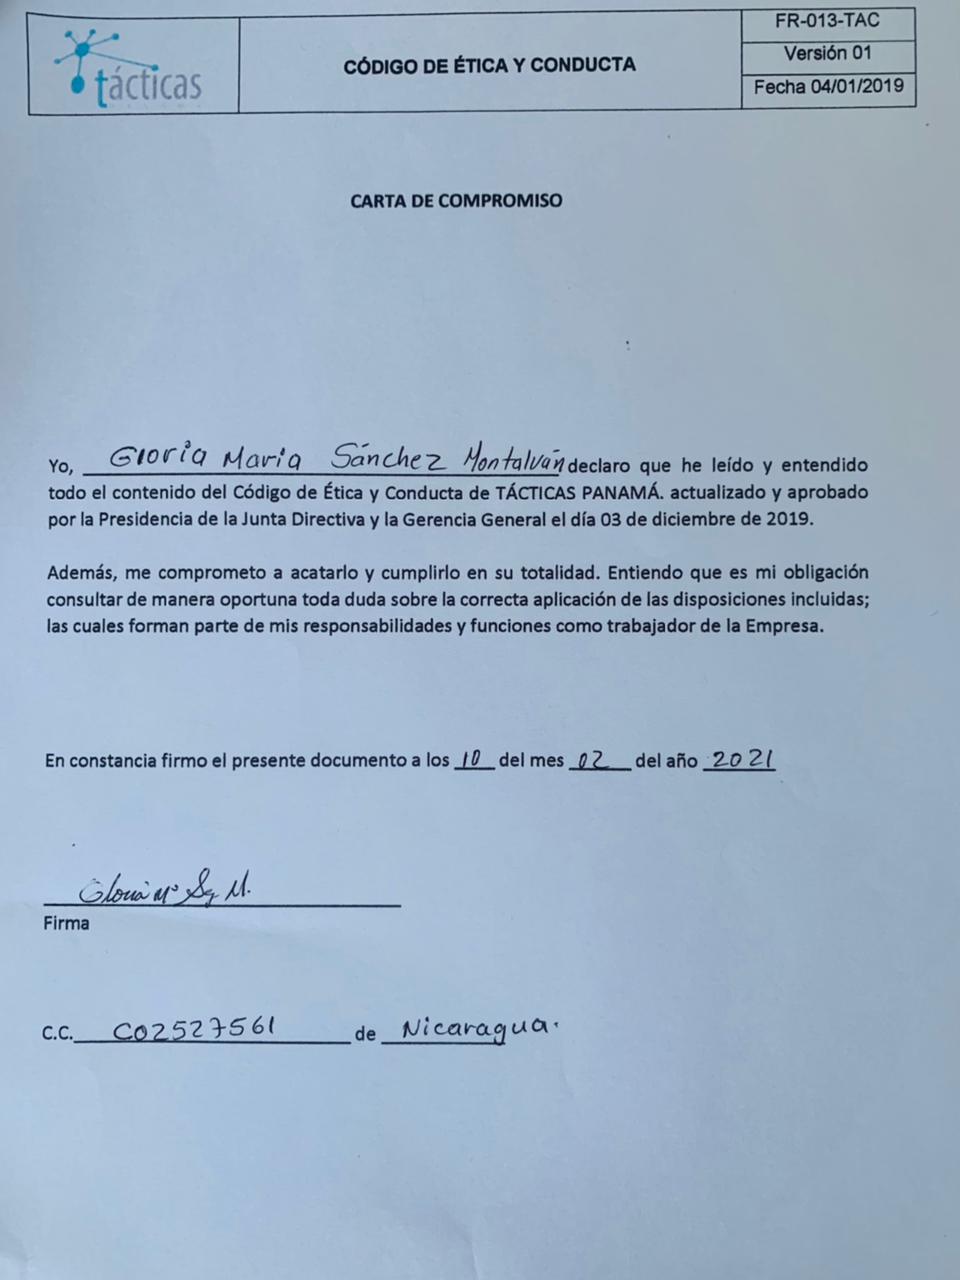 tácticas
CÓDIGO DE ÉTICA Y CONDUCTA
FR-013-TAC
Versión 01
Fecha 04/01/2019
CARTA DE COMPROMISO
Yo, Gloria Maria Sánchez Montalván declaro que he leído y entendido
todo el contenido del Código de Ética y Conducta de TÁCTICAS PANAMÁ. actualizado y aprobado
por la Presidencia de la Junta Directiva y la Gerencia General el día 03 de diciembre de 2019.
Además, me comprometo a acatarlo y cumplirlo en su totalidad. Entiendo que es mi obligación
consultar de manera oportuna toda duda sobre la correcta aplicación de las disposiciones incluidas;
las cuales forman parte de mis responsabilidades y funciones como trabajador de la Empresa.
En constancia firmo el presente documento a los 10 del mes 02 del año 2021
Gloria Mª M.
Firma
C.C. C02527561 de Nicaragua.